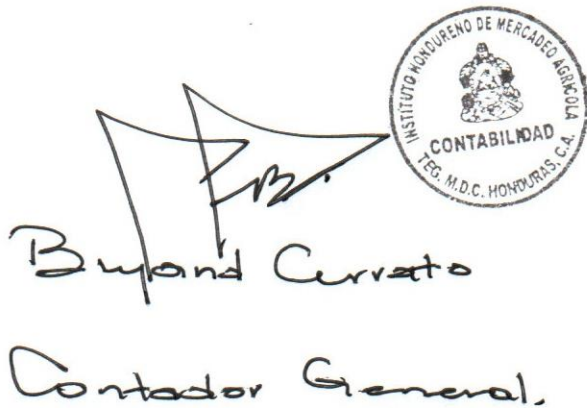 INSTITUTO HONDUREÑO DE MERCADEO AGRICOLA
CONTABILIDAD
TEG. M.D.C. HONDURAS, C.A.
Cerrato
Contador General.